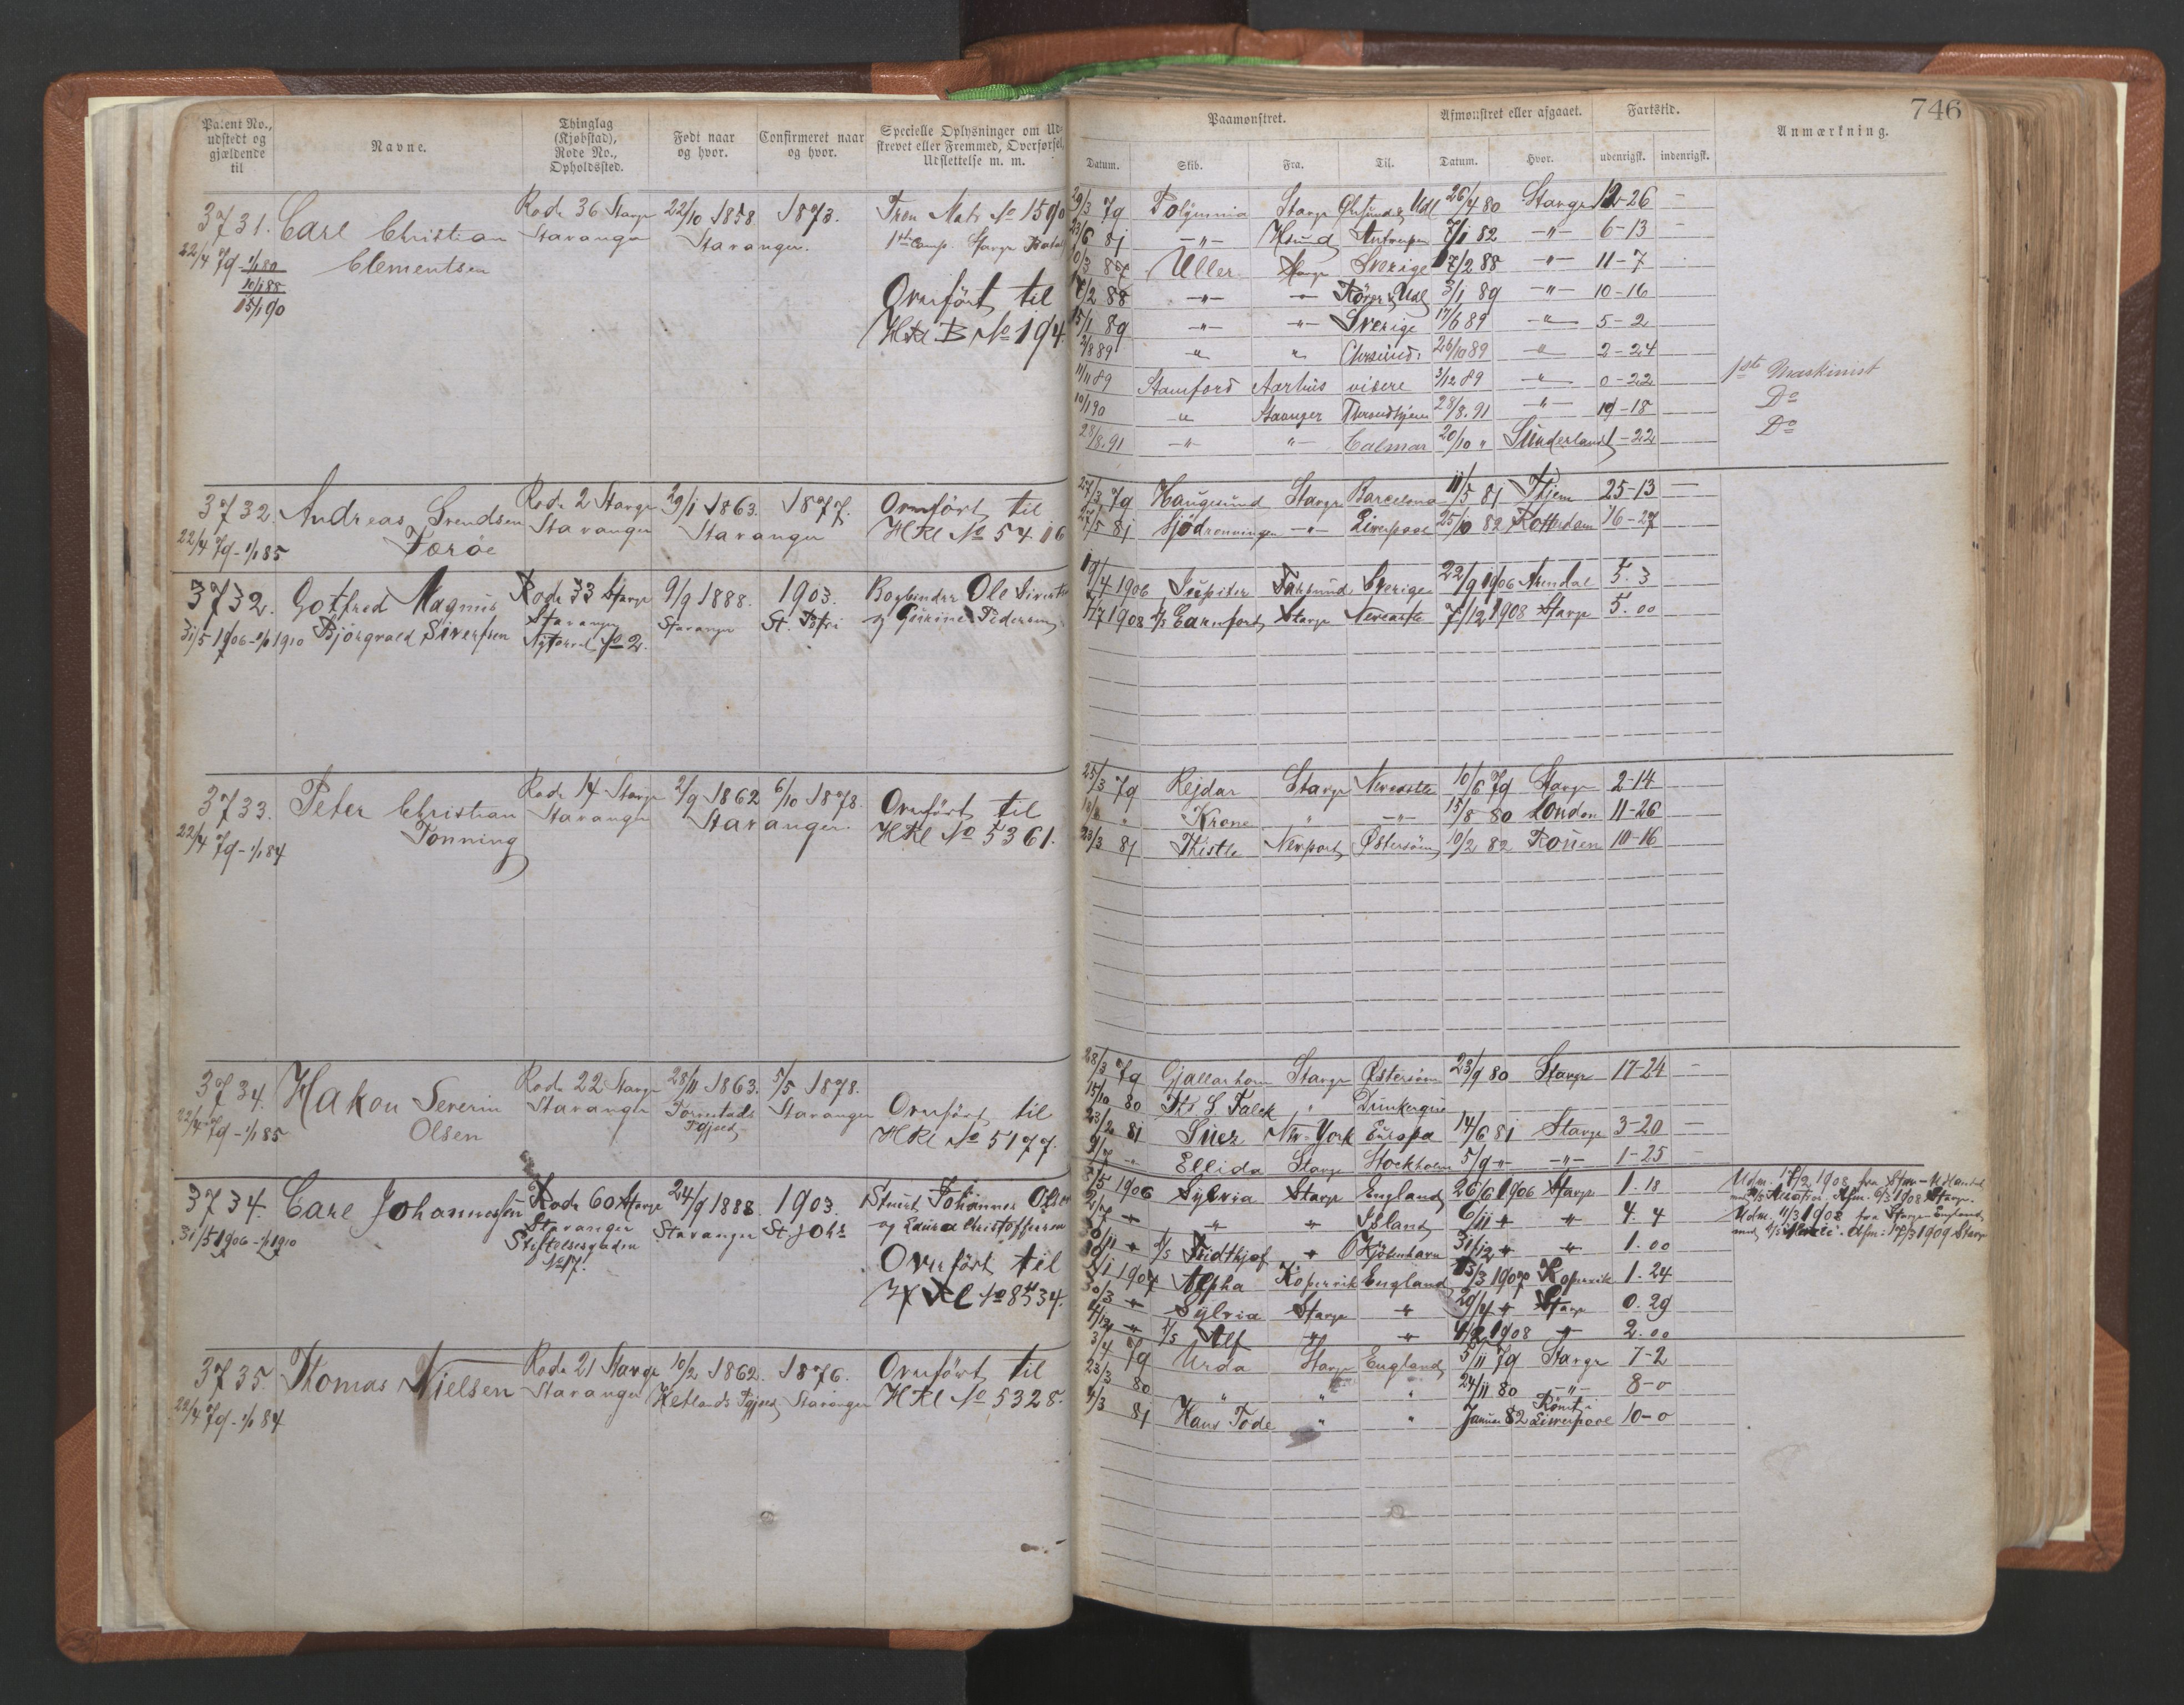 Patent No., udstedt og gjældende til
Navne.
Thinglag (Kjøbstad), Rode No., Opholdssted.
Født naar og hvor.
Confirmeret naar og hvor.
Specielle Oplysninger om Udstrevet eller Fremmed, Overførsel, Udslettelse m. m.
Paamønstret.
Datum. Skib. Fra. Til.
Afmønstret eller afgaaet.
Datum. Hvor.
Fartstid.
udenrigsk. indenrigsk.
Anmærkning.
746
3731. Carl Christian Clementsen
22/4 79 - 1/1 80
10/1 88
15/1 90
Rode 36 Stavgr
Stavanger
22/10 1858. 1873.
Stavanger.
Matr No 1590
1ste Comp. Stavgr
Overført til
HRl B No 194.
29/3 79 Polymnia Stavgr Udl 26/4 80 Stavgr 12-26 -
23/6 81 -"- Hsund Antverpen 7/1 82 -"- 6-13 -
87 Uller Stavgr Sverige 7/2 88 -"- 11-7
7/2 88 -"- -"- Udl 3/1 89 -"- 10-16
15/1 89 -"- -"- Sverige 17/6 89 -"- 5-2
2/8 89 " " 26/10 89 " 2-24
11/11 89 Stamford Aarhus videre 3/12 89 " 0-22 1ste Maskinist
10/1 90 " Stavanger Throndhjem 28/8. 91 -"- 19-18 Do
28/8. 91 -"- " Calmar 20/10 " Sunderland 1-22 Do
3732. Andreas Svendsen Torøe
22/4 79 - 1/1 85
Rode 2 Stavgr
Stavanger
29/1 1863. 1877.
Stavanger
Overført til
HRl No 5416
27/3 79 Haugesund Stavgr Barcelona 11/5 81 Thjem 25-13 -
27/5 81 Sjødronningen -"- Liverpool 25/10 82 Rotterdam 16-27
3732. Gotfred Magnus
31/5 1906 - 1/1 1910 Bjørgvald Sivertsen
Rode 33 Stavgr
Stavanger
Nytorvet No 2.
9/9 1888. 1903.
Stavanger St. Petri
Bogbinder Ole Sivertsen
og Gurine Pedersen
19/4 1906 Jupiter Farsund Sverige 22/9 1906 Arendal 5. 3
7/7 1908 s/s Earnford Stavgr Newcastle 7/12 1908 Stavgr 5. 00
3733. Peter Christian Tonning
22/4 79 - 1/1 84
Rode 14 Stavgr
Stavanger
2/9 1862 6/10 1878.
Stavanger.
Overført til
HRl No 5361.
25/3 79 Rejdar Stavgr Newcastle 10/6 79 Stavgr 2-14
" Krone " -"- 15/8 80 London 11-26
23/3 81 Thistle Newport Østersøen 10/2 82 Rouen 10-16
3734. Hakon Severin Olsen
22/4 79 - 1/1 85
Rode 22 Stavgr
Stavanger
28/11 1863. 5/5 1878.
Torvestads Pgjeld Stavanger
Overført til
HRl No 5177.
28/3 79 Gjallarhorn Stavgr Østersøen 23/9 80 Stavgr 17-24 -
15/10 80 Ths S Falck " Dunkerque
23/2 81 Suez New-York Europa 14/6 81 Stavgr 3-20 -
9/7 " Ellida Stavgr Stockholm 5/9 " -"- 1-25 -
3734. Carl Johannessen
31/5 1906 - 1/1 1910
Rode 60 Stavgr
Stavanger
Stiftelsesgaden
No 17.
24/9 1888 1903.
Stavanger St. Johs
Stuert Johannes Olsen
og Laura Christoffersen
Overført til
HRl No 8434.
/5 1906 Sylvia Stavgr England 26/6 1906 Stavgr 1. 18
2/7 " " " Island 6/11 " " 4. 4
/11 " s/s Fridthjof " Kjøbenhavn 31/12 " " 1. 00
/1 1907 Alpha Kopervik England 13/3 1907 Kopervik 1. 24
30/3 " Sylvia Stavgr " 29/4 " Stavgr 0. 29
4/12 " s/s Alf " " 4/2 1908 " 2. 00
Udm. 17/2 1908 fra Udlandet
med s/s Afm. 6/3 1908 Stavgr.
Udm. 11/3 1908 fra Stavgr - England
med s/s Afm: 17/3 1909 Stavgr
3735. Thomas Nielsen
22/4 79 - 1/1 84
Rode 21 Stavgr
Stavanger
10/2 1862. 1876.
Hetlands Pgjeld Stavanger
Overført til
HRl No 5328.
3/4 79 Urda Stavgr England 5/11 79 Stavgr 7-2
23/3 80 " " " 24/11 80 -"- 8-0
4/3 81 Hans Tode " " Januar 82 Rømt i Liverpool 10-0